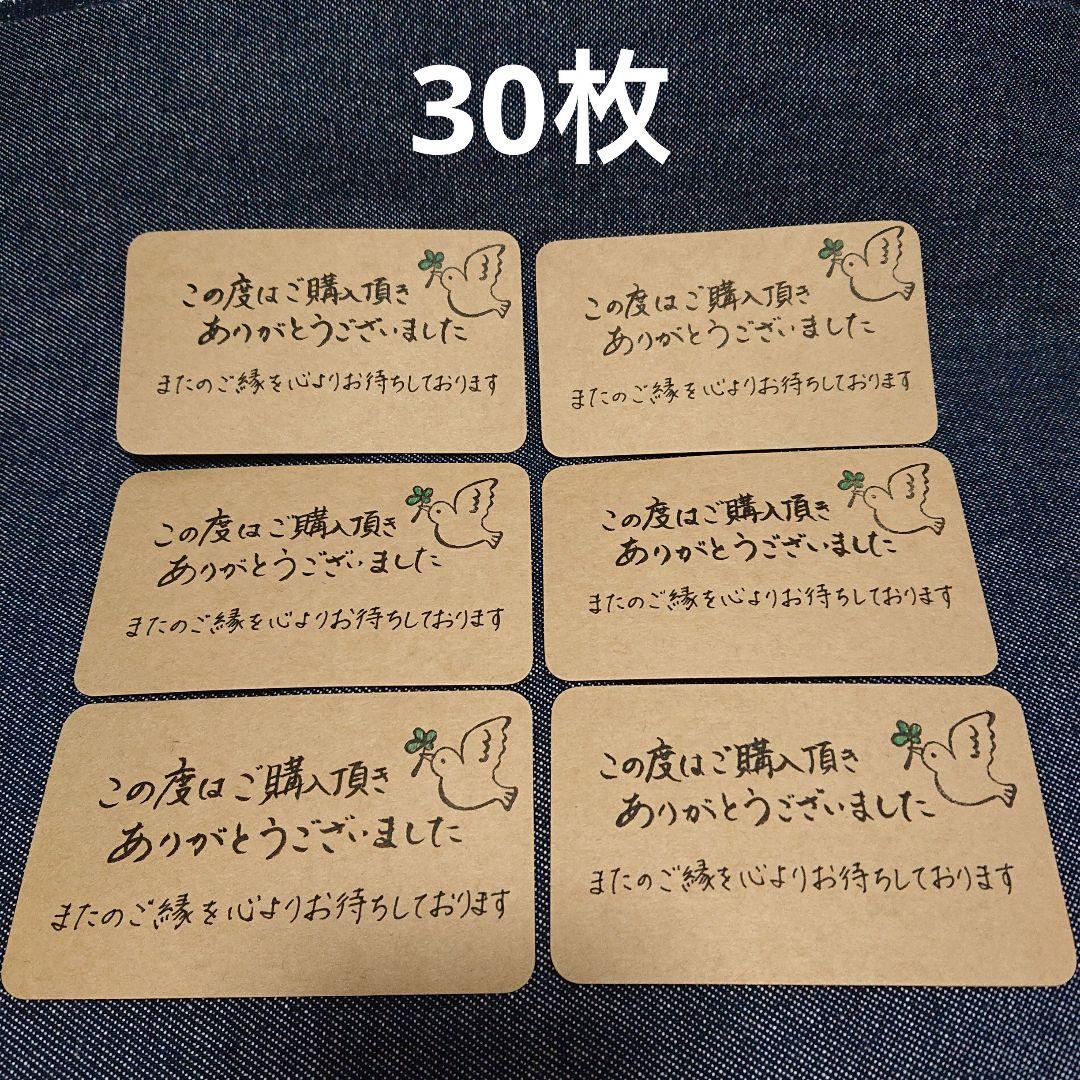 30枚
この度はご購入頂き
ありがとうございました
またのご縁を心よりお待ちしております
この度はご購入頂き
ありがとうございました
またのご縁を心よりお待ちしております
この度はご購入頂き
ありがとうございました
またのご縁を心よりお待ちしております
この度はご購入頂き
ありがとうございました
またのご縁を心よりお待ちしております
この度はご購入頂き
ありがとうございました
またのご縁を心よりお待ちしております
この度はご購入頂き
ありがとうございました
またのご縁を心よりお待ちしております